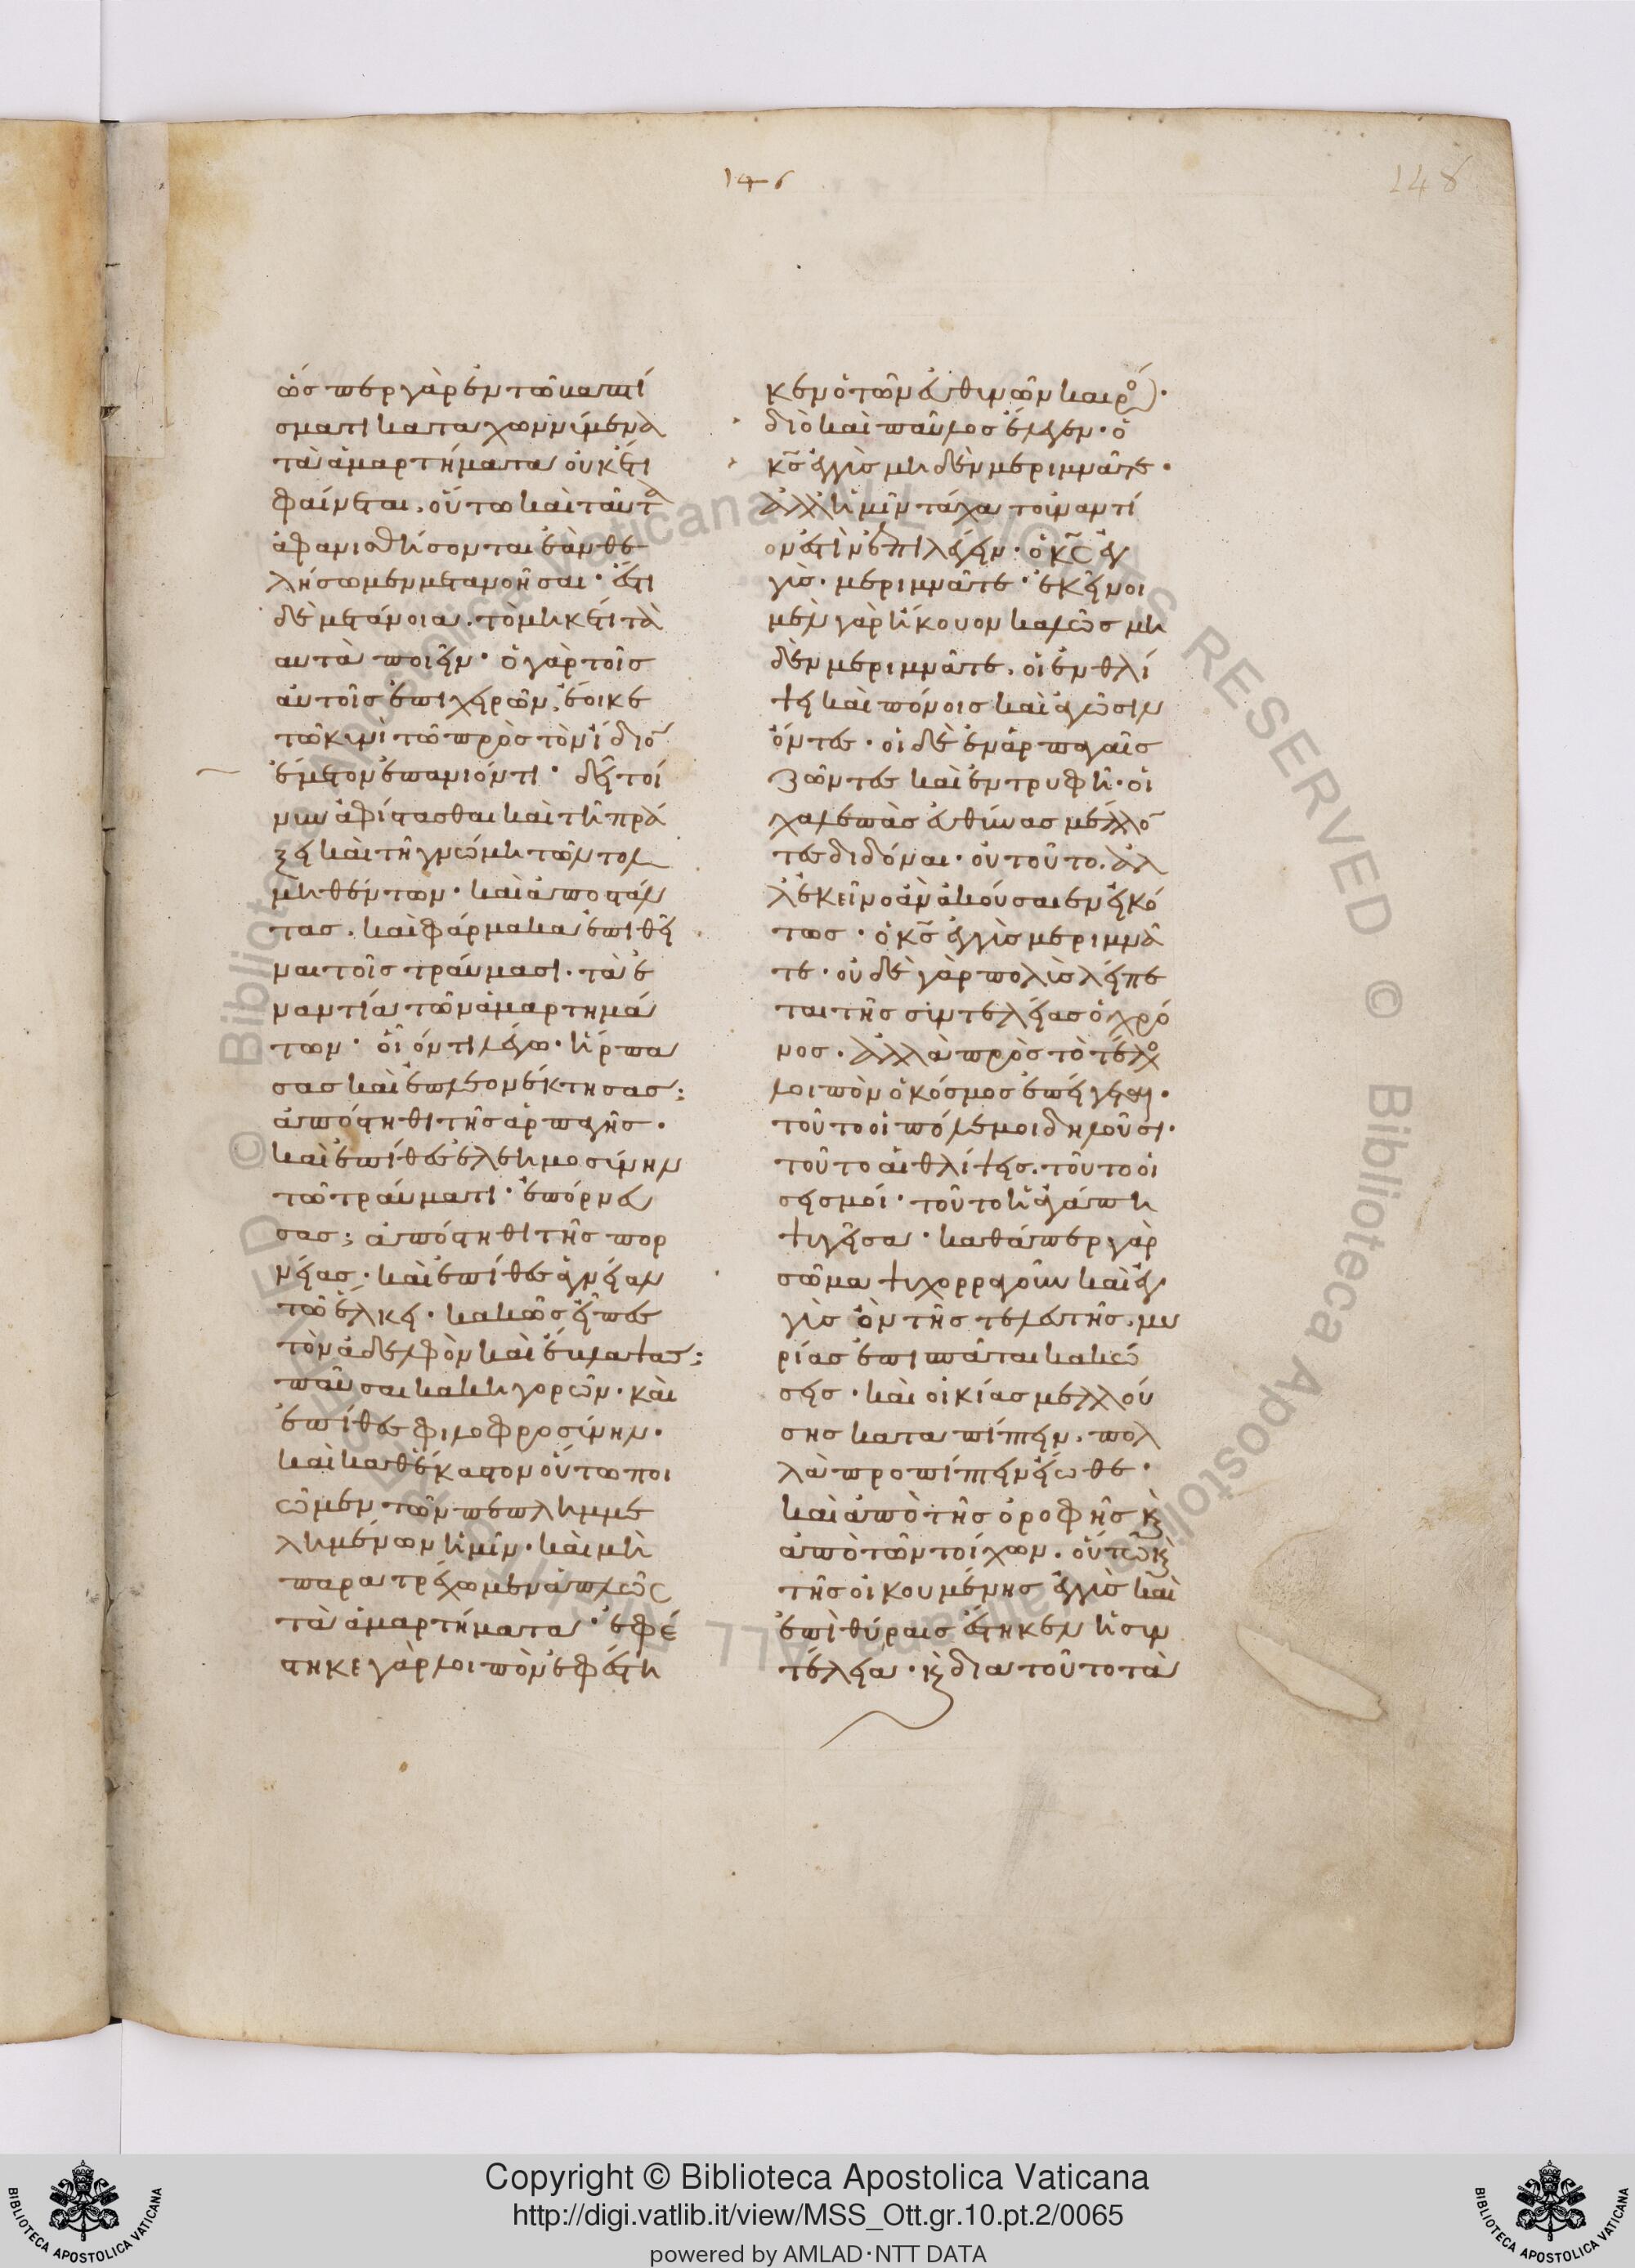 146
148
ὥσπερ γὰρ ἐν τῶ βαπτί
σματι καταχωννύμενα
τὰ ἁμαρτήματα οὐκέτι
φαίνεται, οὕτω καὶ ταῦτα
ἀφανισθήσονται ἐὰν θε
λήσωμεν μετανοῆσαι· ἔστι
δὲ μετάνοια, τὸ μηκέτι τὰ
αυτὰ ποιεῖν· ὁ γὰρ τοῖς
αὐτοῖς ἐπιχειρῶν, ἔοικε
τῶ κυνὶ τῶ πρὸς τὸν ἴδιον
ἔμετον ἐπανιόντι· δεῖ τοί
νυν ἀφίστασθαι καὶ τῆ πρά
ξει καὶ τῆ γνώμη τῶν τολ
μηθέντων· καὶ ἀποστάν
τας, καὶ φάρμακα ἐπιθεῖ
ναι τοῖς τραύμασι, τὰ ἐ
ναντία τῶν ἁμαρτημά
των· οἷόν τι λέγω· ἥρπα
σας καὶ ἐπλεονέκτησας;
ἀπόστηθι τῆς ἁρπαγῆς·
καὶ ἐπίθες ἐλεημοσύνην
τῶ τραύματι· ἐπόρνευ
σας; ἀπόστηθι τῆς πορ
νείας· καὶ ἐπίθες ἁγνείαν
τῶ ἕλκει· κακῶς εἶπες
τὸν ἀδελφὸν καὶ ἔβλαψας;
παῦσαι κακηγορῶν· καὶ
ἐπίθες φιλοφροσύνην·
καὶ καθέκαστον οὕτω ποι
ῶμεν τῶν πεπλημμε
λημένων ἡμῖν· καὶ μὴ
παρατρέχωμεν ἁπλῶς
τὰ ἁμαρτήματα· ἐφέ
στηκε γὰρ λοιπὸν ἐφέστη
κεν ὁ τῶν εὐθυνῶν καιρός·
διὸ καὶ παῦλος ἔλεγεν· ὁ
κς ἐγγὺς μηδὲν μεριμνᾶτε·
ἀλλ' ἡμῖν τάχα τοὐναντί
ον ἔστιν εἰπεῖν· ὁ κς ἐγ
γὺς· μεριμνᾶτε· ἐκεῖνοι
μὲν γὰρ ἤκουον καλῶς μη
δὲν μεριμνᾶτε, οἱ ἐν θλί
ψει καὶ πόνοις καὶ ἀγῶσιν
ὄντες· οἱ δὲ ἐν ἁρπαγαῖς
ζῶντες καὶ ἐν τρυφῆ· οἱ
χαλεπὰς εὐθύνας μέλλον
τες διδόναι· οὐ τοῦτο, ἀλ
λ' ἐκεῖνο ἂν ἀκούσαιεν εἰκό
τως· ὁ κς ἐγγὺς μεριμνᾶ
τε· οὐδὲ γὰρ πολὺς λείπε
ται τῆς συντελείας ὁ χρό
νος· ἀλλὰ πρὸς τὸ τέλος
λοιπὸν ὁ κόσμος ἐπείγεται·
τοῦτο οἱ πόλεμοι δηλοῦσι·
τοῦτο αἱ θλίψεις, τοῦτο οἱ
σεισμοί· τοῦτο ἡ ἀγάπη
ψυγεῖσα· καθάπερ γὰρ
σῶμα ψυχορραγοῦν καὶ ἐγ
γὺς ὂν τῆς τελευτῆς, μυ
ρίας ἐπισπᾶται κακώ
σεις· καὶ οἰκίας μελλού
σης καταπίπτειν, πολ
λὰ προπίπτειν εἴωθε·
καὶ ἀπὸ τῆς ὀροφῆς κ
ἀπὸ τῶν τοίχων· οὕτω κ
τῆς οἰκουμένης ἐγγὺς καὶ
ἐπὶ θύραις ἕστηκεν ἡ συν
τέλεια· κ δια τοῦτο τὰ
© Biblioteca Apostolica Vaticana ALL RIGHTS RESERVED © Biblioteca Apostolica Vaticana ALL RIGHTS RESERVED
BIBLIOTECA APOSTOLICA VATICANA
Copyright © Biblioteca Apostolica Vaticana
http://digi.vatlib.it/view/MSS_Ott.gr.10.pt.2/0065
powered by AMLAD·NTT DATA
BIBLIOTECA APOSTOLICA VATICANA